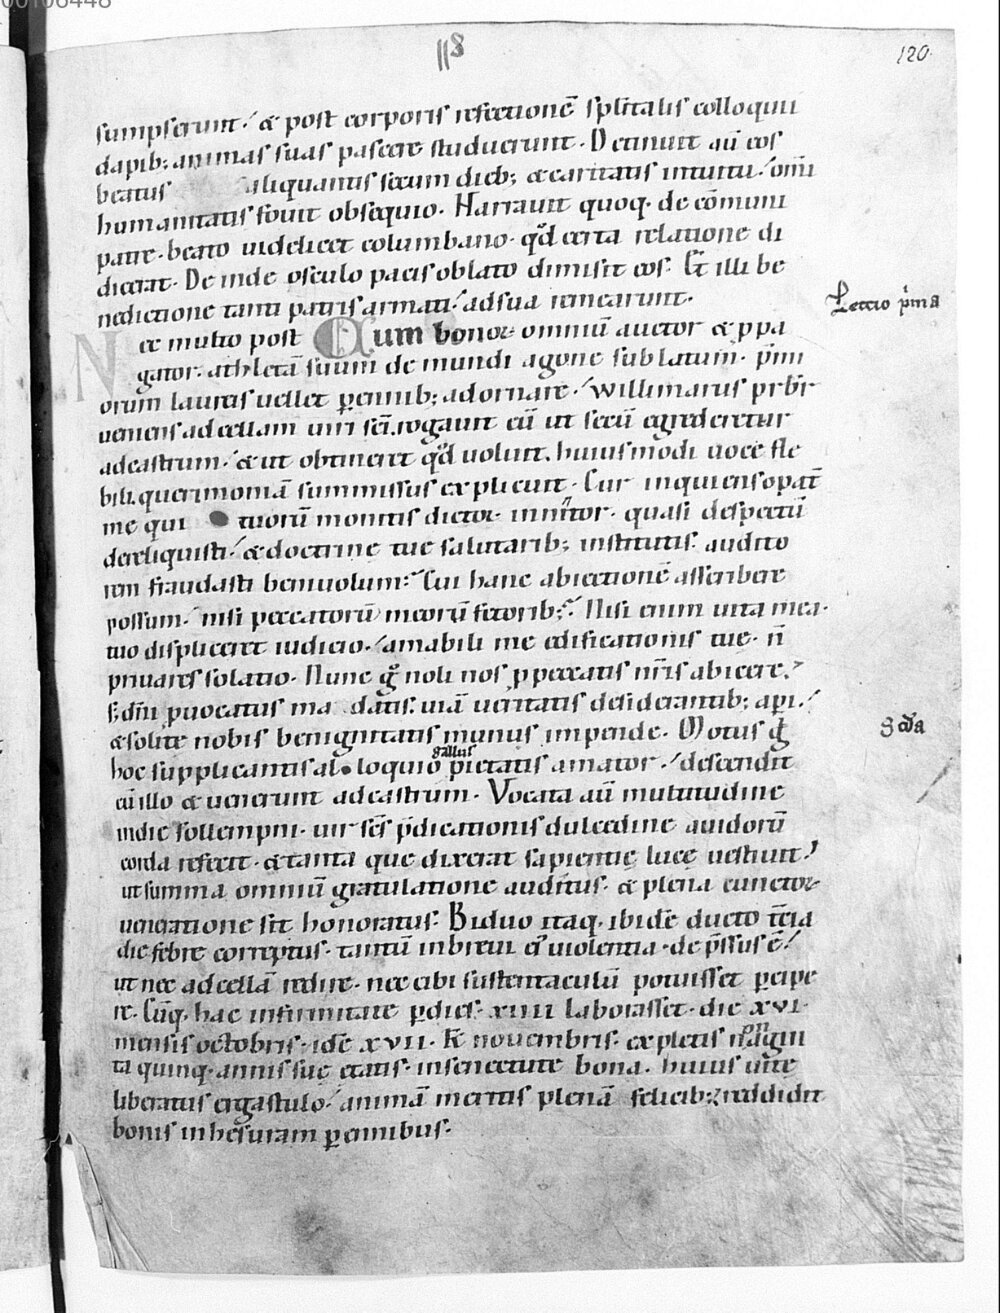 00106448
118
120.
sumpserunt. & post corporis refectionē spiritalis colloquii
dapib; animas suas pascere studuerunt. Detinuit aū eos
beatus aliquantis secum dieb; & caritatis intuitu omni
humanitatis fouit obsequio. Narrauit quoq. de cōmuni
patre. beato uidelicet columbano. qd certa relatione di
dicerat. Deinde osculo pacis oblato dimisit eos. Et illi be
nedictione tanti patris armati. ad sua remearunt.
Lectio p̄ma
Nec multo post Cum bonoꝝ omniū auctor & ppa
gator. athletā suum de mundi agone sublatum. p̄mi
orum laureis uellet pennib; adornare. willimarus prbr
ueniens ad cellam uiri sc̄i. rogauit eū ut secū egrederetur
ad castrum. & ut obtineret qd uoluit. huius modi uoce fle
bili. querimoniā summissus explicuit. Cur inquiens o pat̄
me qui tuorū monitis dictoꝝ innitor. quasi despectū
dereliquisti. & doctrine tue salutarib; institutis. audito
rem fraudasti beniuolum. Cui hanc abiectionē asscribere
possum. nisi peccatorū meorū fetorib; Nisi enim uita mea
tuo displiceret iudicio. amabili me edificationis tue. n̄
priuares solatio. Nunc g noli nos p peccatis nr̄is abicere.
s; dn̄i puocatus ma datis. uiā ueritatis desiderantib; api.
& solite nobis benignitatis munus impende. Motus g
Scda
hoc supplicantis al loquio gallus pietatis amator. descendit
cū illo & uenerunt ad castrum. Vocata aū multitudine
in die sollempni. uir sc̄s p̄dicationis dulcedine auidorū
corda refecit. & tanta que dixerat sapientię luce uestiuit.
ut summa omniū gratulatione auditus. & plena cunctoꝝ
ueneratione sit honoratus. Biduo itaq. ibidē ducto t̄cia
die febre correptus. tantū in breui ei uiolentia. de p̄ssus ē.
ut nec ad cellā redire. nec cibi sustentaculū potuisset pcipe
re. Cūq. hac infirmitate p dies. xiiii laborasset. die xvi.
mensis octobris. idē xvii. K nouembris. expletis nonagin
ta quinq. annis suę etatis. in senectute bona. huius uite
liberatus ergastulo. animā meritis plenā felicib; reddidit
bonis inhesuram pennibus.